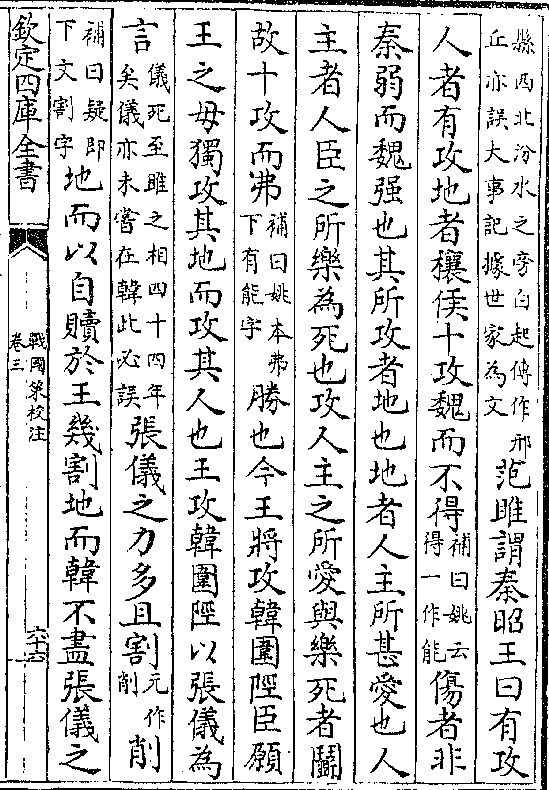 縣西北汾水之旁白起傳作邢
丘亦誤大事記據世家為文
范雎謂秦昭王曰有攻
人者有攻地者穰侯十攻魏而不得
補曰姚云
得一作能
傷者非
秦弱而魏强也其所攻者地也地者人主所甚愛也人
主者人臣之所樂為死也攻人主之所愛與樂死者鬭
故十攻而弗
補曰姚本弗
下有能字
勝也今王將攻韓圍陘臣願
王之毋獨攻其地而攻其人也王攻韓圍陘以張儀為
言
儀死至雎之相四十四年
矣儀亦未嘗在韓此必誤
張儀之力多且割
元作
削
削
補曰疑即
下文割字
地而以自贖於王幾割地而韓不盡張儀之
欽定四庫全書
戰國策校注
卷三
六十六